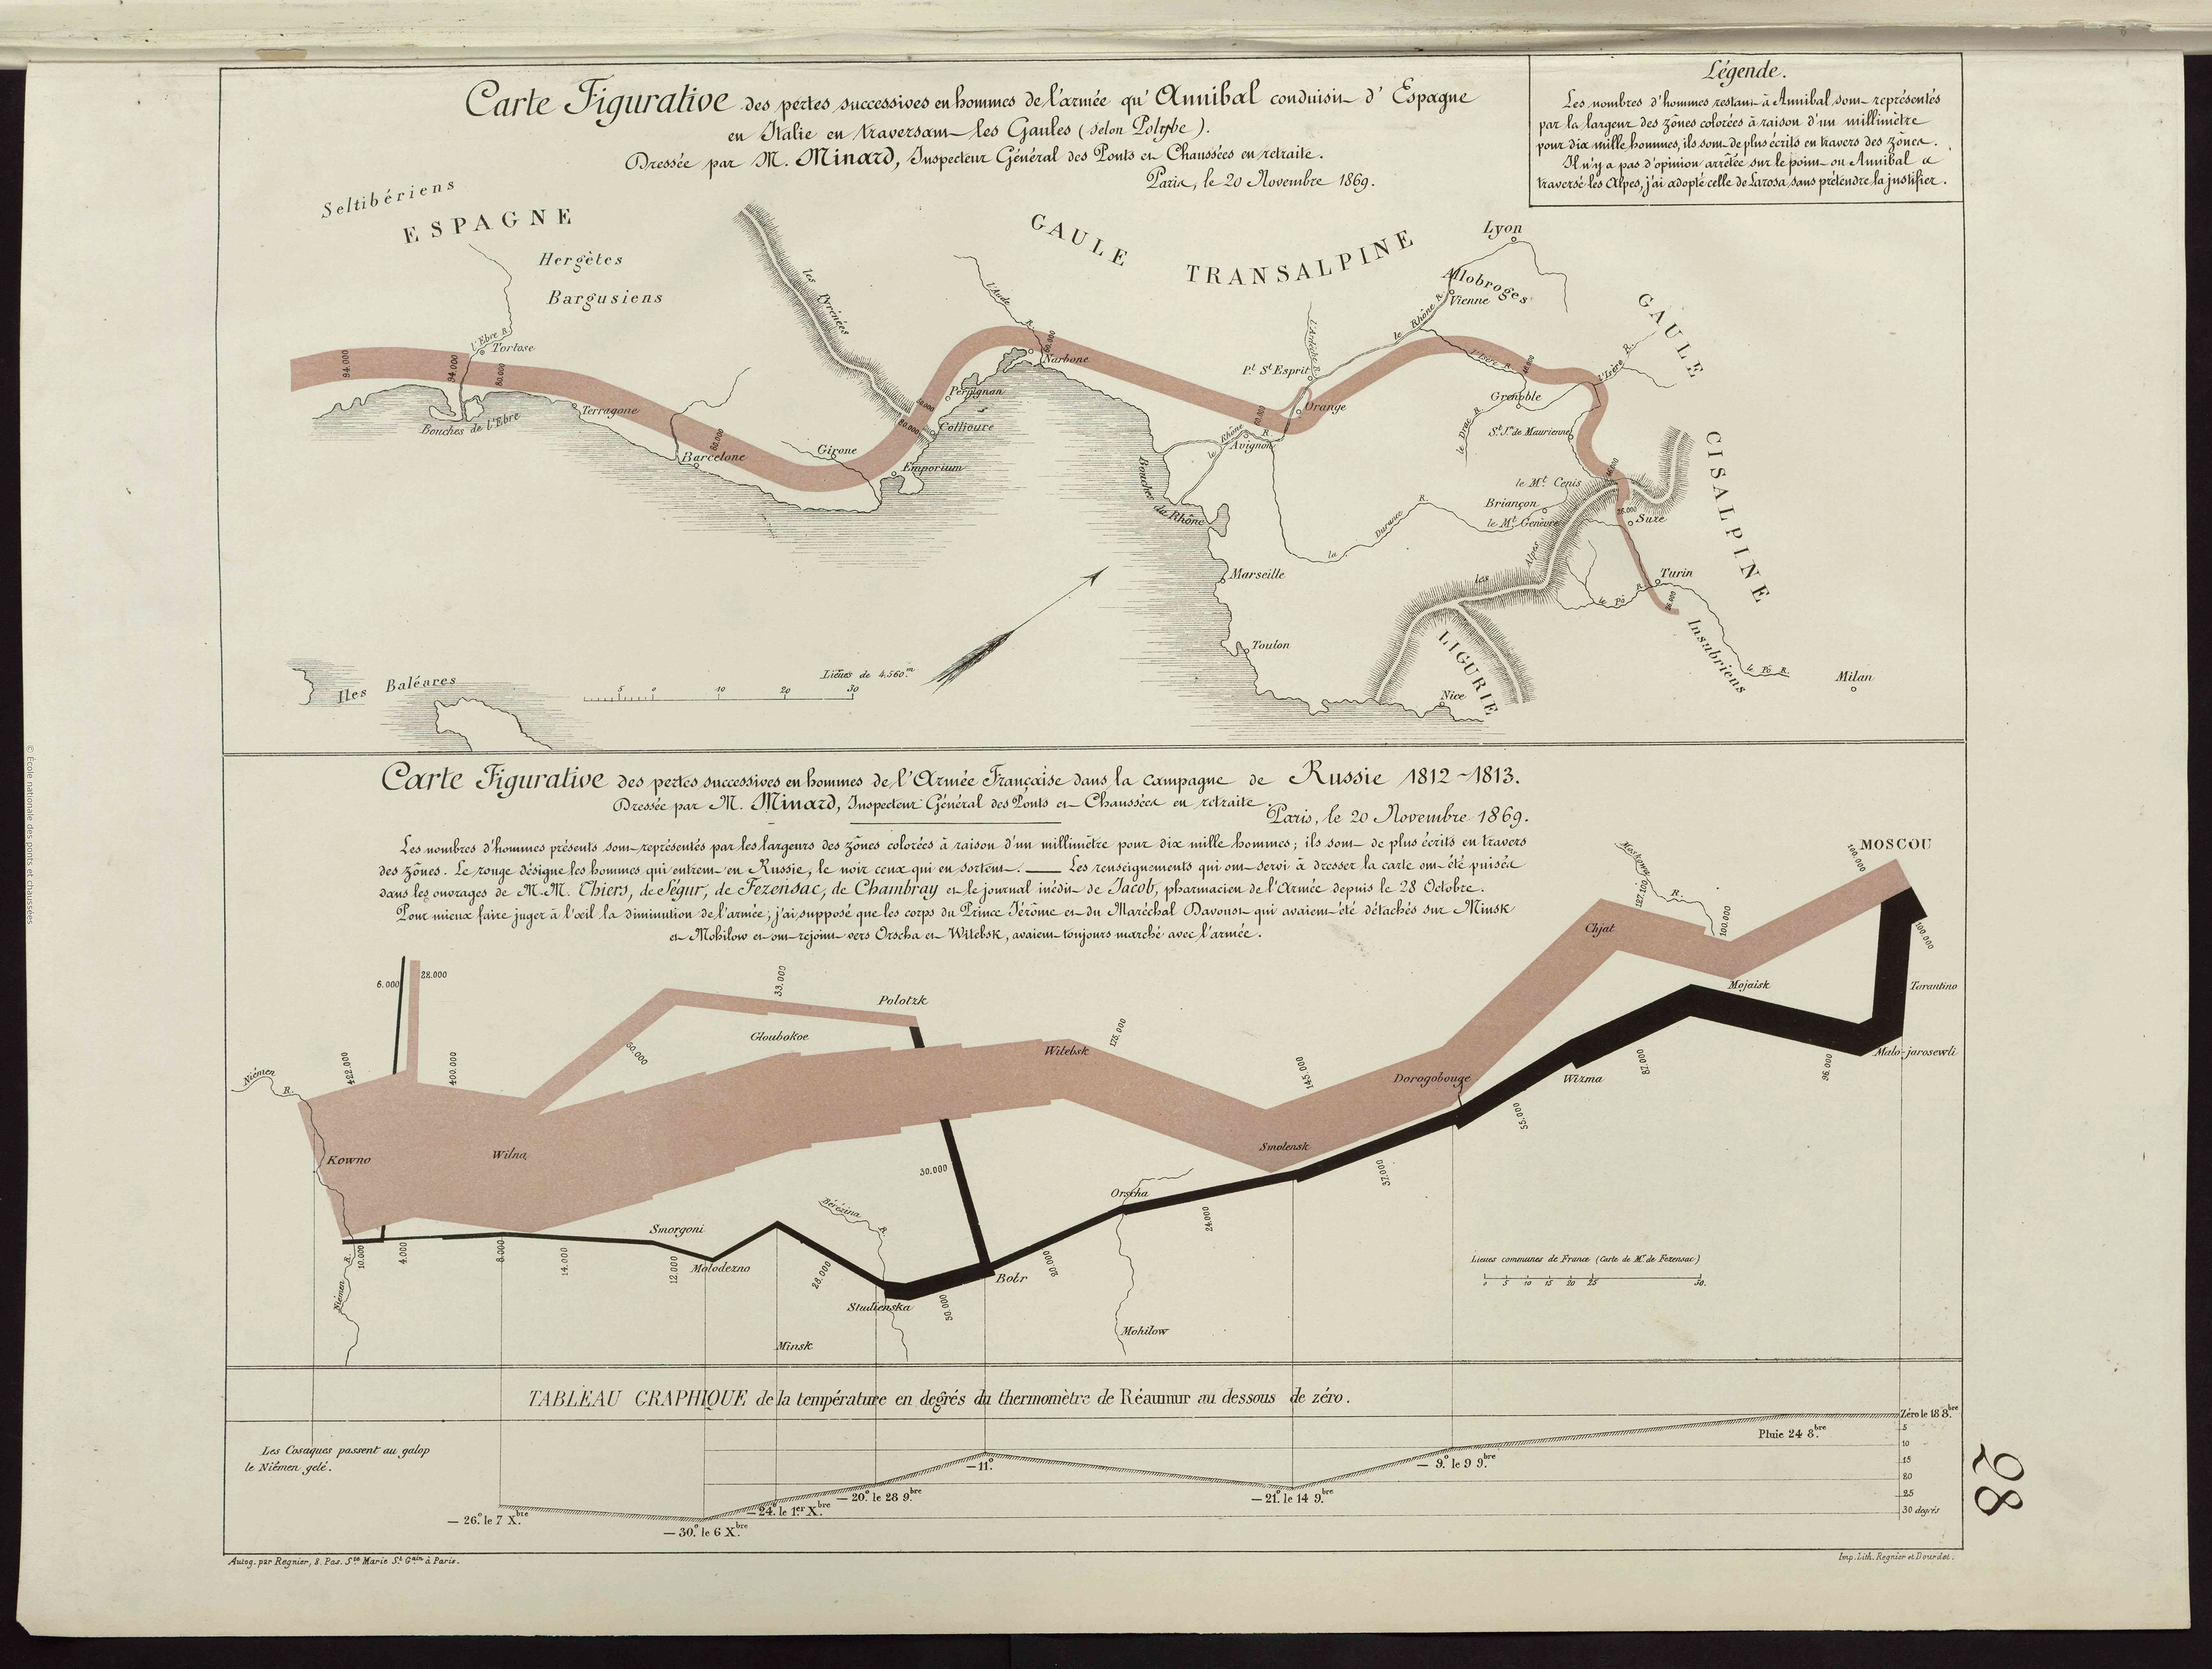 Carte Figurative des pertes successives en hommes de l'armée qu'Annibal conduisit d'Espagne
en Italie en traversant les Gaules (selon Polybe).
Dressée par M. Minard, Inspecteur Général des Ponts et Chaussées en retraite.
Paris, le 20 Novembre 1869.
Légende.
Les nombres d'hommes restant à Annibal sont représentés
par la largeur des zônes colorées à raison d'un millimètre
pour dix mille hommes, ils sont de plus écrits en travers des zônes.
Il n'y a pas d'opinion arrêtée sur le point où Annibal a
traversé les Alpes, j'ai adopté celle de Larosa sans prétendre la justifier.
Seltibériens
ESPAGNE
Hergètes
Bargusiens
les Pyrénées
GAULE TRANSALPINE
Lyon
Allobroges
Vienne
GAULE CISALPINE
l'Aude R.
le Rhône R.
l'Ardèche R.
l'Isère R.
l'Isère R.
94.000
94.000
l'Ebre R.
Tortose
80.000
Bouches de l'Ebre
Terragone
60.000
Barcelone
Girone
Emporium
60.000
Collioure
Perpignan
Narbone
Pt. St. Esprit
Orange
Avignon
le Rhône R.
Bouches du Rhône
Grenoble
le Drac R.
St. Jn. de Maurienne
le Mt. Cenis
Briançon
le Mt. Genèvre
26.000
Suze
la Durance R.
les Alpes
Marseille
Turin
le Pô R.
26.000
Insubriens
le Pô R.
Milan
Toulon
LIGURIE
Nice
Iles Baléares
Lieues de 4.560.m
5 0 10 20 30
Carte Figurative des pertes successives en hommes de l'Armée Française dans la campagne de Russie 1812-1813.
Dressée par M. Minard, Inspecteur Général des Ponts et Chaussées en retraite.
Paris, le 20 Novembre 1869.
Les nombres d'hommes présents sont représentés par les largeurs des zônes colorées à raison d'un millimètre pour dix mille hommes; ils sont de plus écrits en travers
des zônes. Le rouge désigne les hommes qui entrent en Russie, le noir ceux qui en sortent. — Les renseignements qui ont servi à dresser la carte ont été puisés
dans les ouvrages de M.M. Thiers, de Ségur, de Fezensac, de Chambray et le journal inédit de Jacob, pharmacien de l'Armée depuis le 28 Octobre.
Pour mieux faire juger à l'œil la diminution de l'armée, j'ai supposé que les corps du Prince Jérôme et du Maréchal Davoust qui avaient été détachés sur Minsk
et Mohilow et ont rejoint vers Orscha et Witebsk, avaient toujours marché avec l'armée.
MOSCOU
100.000
Moskowa R.
127.100
100.000
Chjat
Mojaisk
100.000
Tarantino
Malo-jarosewli
6.000
28.000
33.000
Polotzk
Gloubokoe
50.000
Niémen R.
422.000
400.000
Witebsk
175.000
145.000
Dorogobouge
Wizma
87.000
96.000
55.000
Kowno
Wilna
30.000
Smolensk
37.000
Bérézina R.
Orscha
24.000
Smorgoni
Niémen R.
10.000
4.000
8.000
14.000
12.000
Molodezno
28.000
Studienska
50.000
Botr
20.000
Mohilow
Minsk
Lieues communes de France (Carte de Mr. de Fezensac)
0 5 10 15 20 25 50.
TABLEAU GRAPHIQUE de la température en degrés du thermomètre de Réaumur au dessous de zéro.
Les Cosaques passent au galop
le Niémen gelé.
Zéro le 18 8.bre
Pluie 24 8.bre
5
10
15
20
25
30 degrés
— 9°. le 9 9.bre
— 21°. le 14 9.bre
— 11°.
— 20°. le 28 9.bre
— 24°. le 1.er X.bre
— 30°. le 6 X.bre
— 26°. le 7 X.bre
Autog. par Regnier, 8. Pas. Ste. Marie St. Gain. à Paris.
Imp. Lith. Regnier et Dourdet.
28
© École nationale des ponts et chaussées